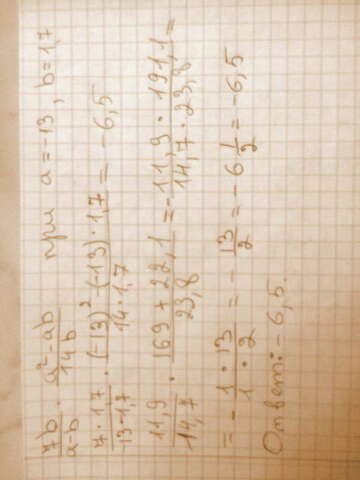 7b/a-b · a²-ab/14b при a=-13, b=1,7
7·17/13-1,7 · (-13)²-(-13)·1,7/14·1,7 = -6,5
11,9/14,7 · 169+22,1/23,8 = -11,9·191,1/14,7·23,8 =
= -1·13/1·2 = -13/2 = -6 1/2 = -6,5
Ответ: -6,5.